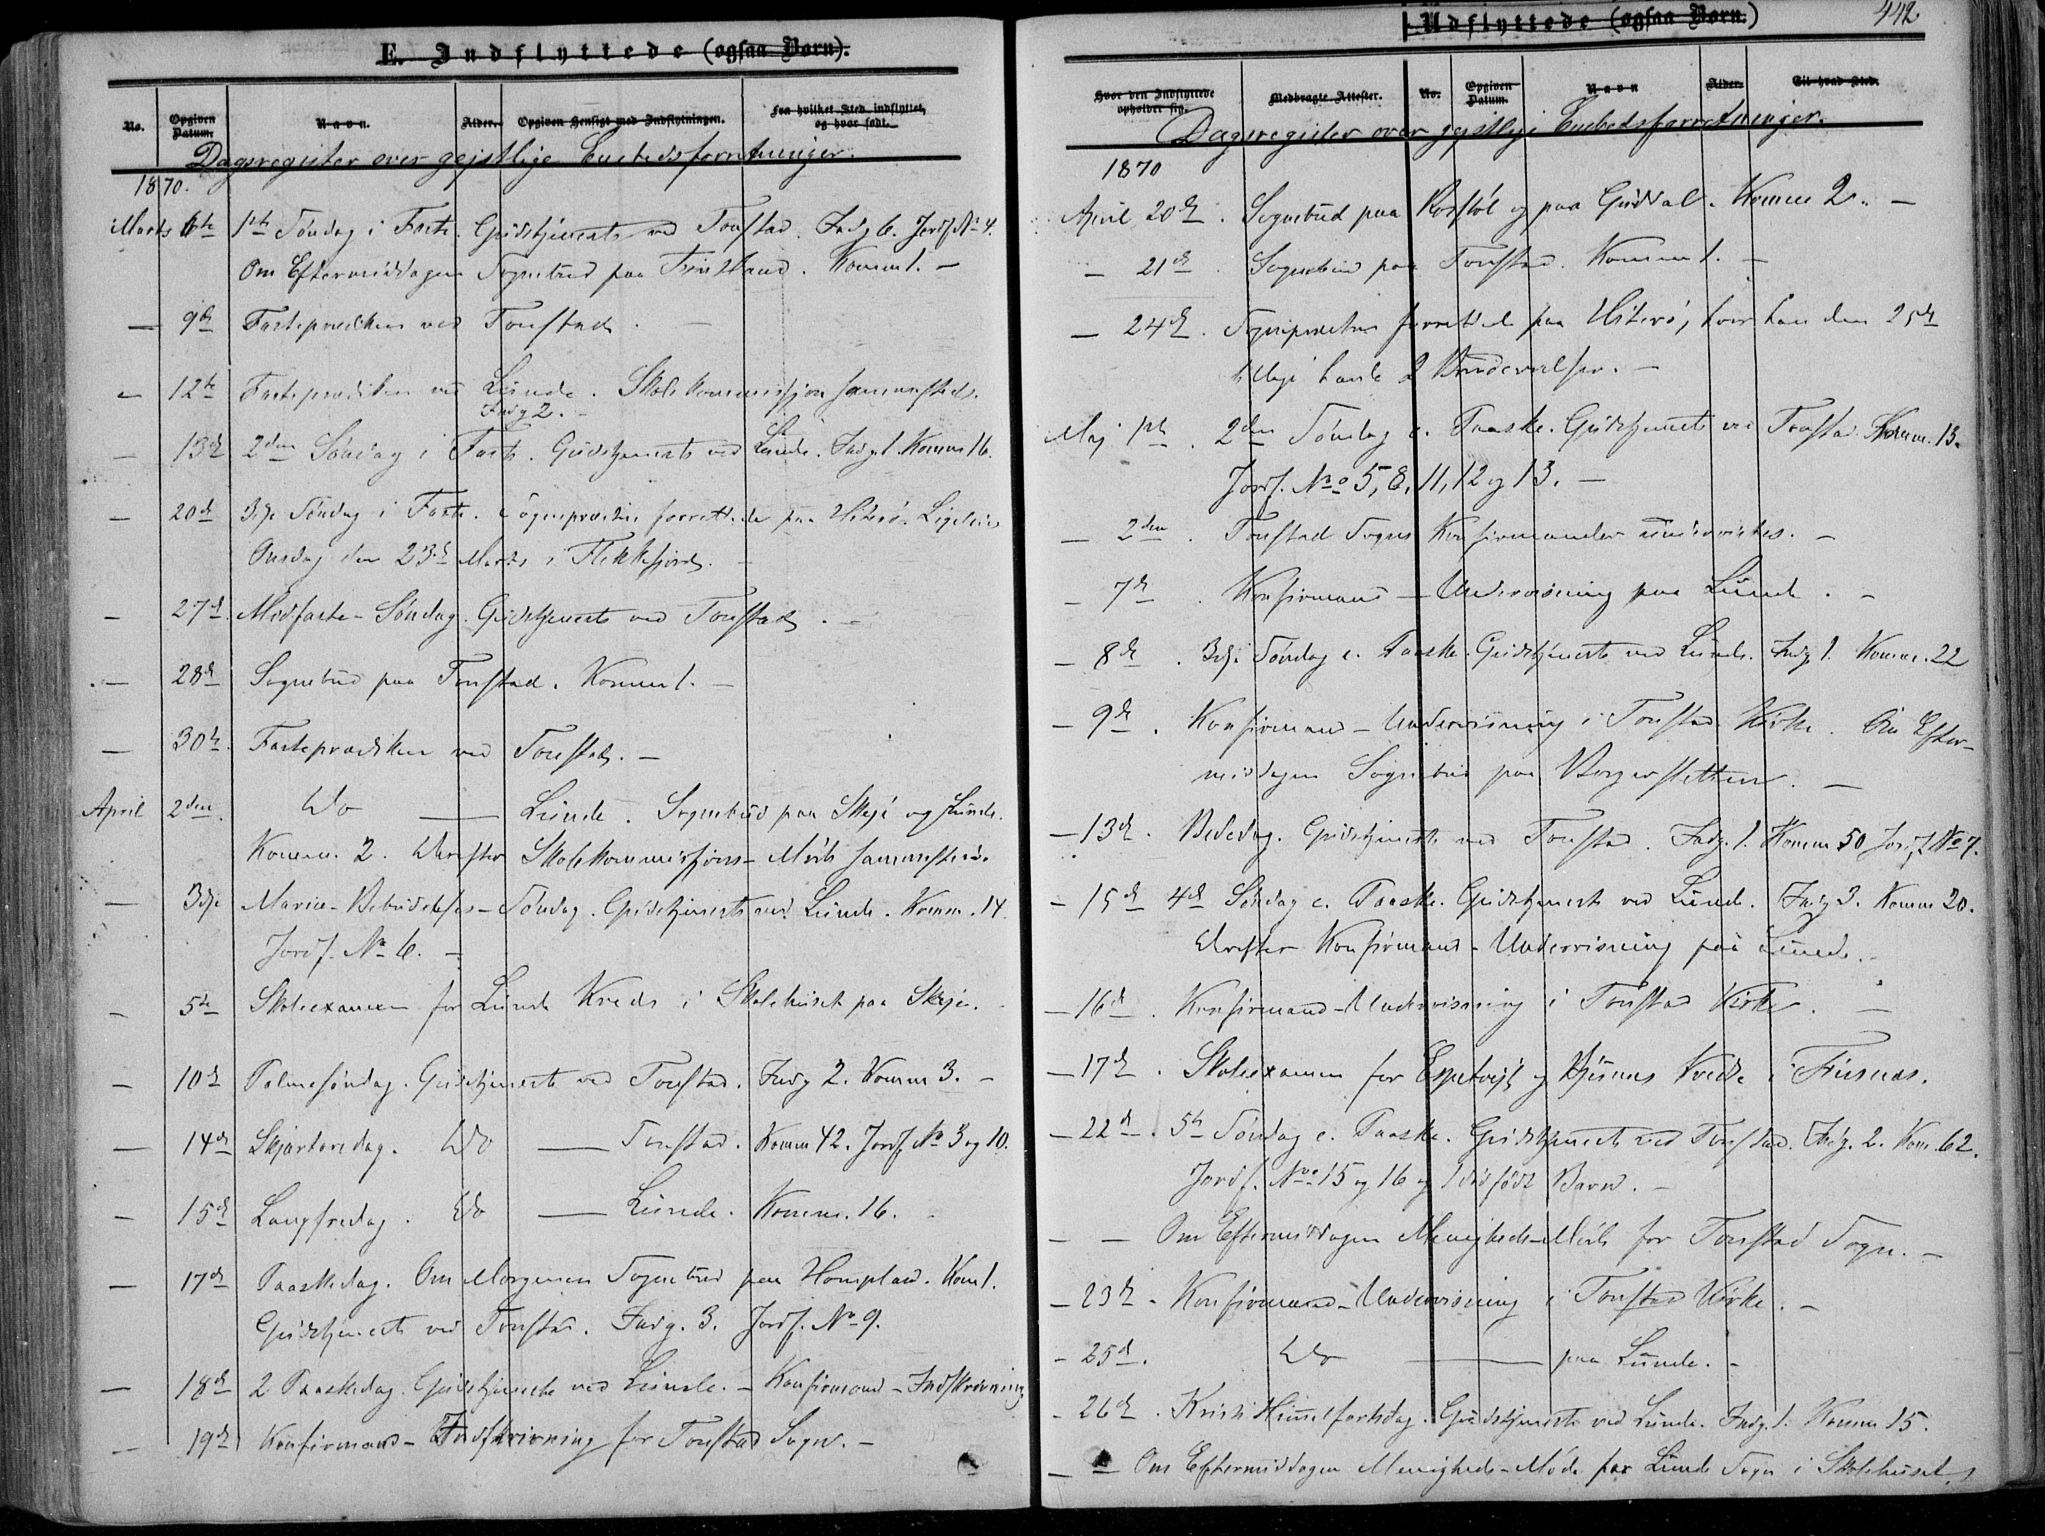 E. Indflyttede (ogsaa Børn).
No.
Opgiven Datum.
Navn.
Alder.
Opgiven Hensigt med Indflytningen.
Fra hvilket Sted indflyttet, og hvor født.
Dagsregister over gejstlige Embedsforretninger.
1870.
Marts 6te 1ste Søndag i Faste. Gudstjeneste ved Tonstad. Indg 6. Jordf. No 4.
Om Eftermiddagen Sognebud paa Komm 1. –
— 9de Fasteprædiken ved Tonstad. –
— 12te Fasteprædiken ved Lunde. Skolekommission sammesteds.
Indg 2. –
— 13de 2den Søndag i Faste. Gudstjeneste ved Lunde. Indg 1. Komm 16.
— 20de 3die Søndag i Faste. Sognepræsten forrettede paa Hiterø. Ligeledes
Onsdag den 23de Marts i Flekkefjord. –
— 27de Midfaste-Søndag. Gudstjeneste ved Tonstad. –
— 28de Sognebud paa Tonstad. Komm 1. –
— 30te Fasteprædiken ved Tonstad. –
April 2den. Do — Lunde. Sognebud paa Skeje og Lunde.
Komm. 2. Derefter Skolekommissions-Møde sammesteds.
— 3die Mariæ-Bebudelses-Søndag. Gudstjeneste ved Lunde. Komm. 14.
Jordf. No 6. –
— 5te Skoleexamen for Lunde Kreds i Skolehuset paa Skeje.
— 10de Palmesøndag. Gudstjeneste ved Tonstad. Indg 2. Komm 3. –
— 14de Skjærtorsdag. Do — Tonstad. Komm 42. Jordf. No 3 og 10.
— 15de Langfredag. Do — Lunde. Komm. 16.
— 17de Paaskedag. Om Morgenen Sognebud paa Hompland. Kom 1.
Gudstjeneste ved Tonstad. Indg. 3. Jordf. No 9.
— 18de 2 Paaskedag. Gudstjeneste ved Lunde. – Konfirmand-Indskrivning
— 19de Konfirmand-Indskrivning for Tonstad Sogn. –
Udflyttede (ogsaa Børn.)
442
Hvor den Indflyttede opholder sig.
Medbragte Attester.
No.
Opgiven Datum.
Navn
Alder.
Til hvad Sted.
Dagsregister over gejstlige Embedsforretninger.
1870
April 20de. Sognebud paa og paa Guddal. Komm 2. –
— 21de Sognebud paa Tonstad. Komm 1. –
— 24de. Sognepræsten forrettede paa Hiterø, hvor han den 25de
tillige havde 2
Maj 1ste. 2den Søndag e. Paaske. Gudstjeneste ved Tonstad. Komm. 13.
Jordf. No 5, 8, 11, 12 og 13. –
— 2den. Tonstad Sogns Konfirmander undervistes. –
— 7de. Konfirmand-Undervisning paa Lunde. –
— 8de. 3die Søndag e. Paaske. Gudstjeneste ved Lunde. Indg 1. Komm. 22
— 9de. Konfirmand-Undervisning i Tonstad Kirke. Om Efter-
middagen Sognebud paa –
— 13de. Bededag. Gudstjeneste ved Tonstad. Indg. 1. Komm 50 Jordf No 7.
— 15de 4de Søndag e. Paaske. Gudstjeneste ved Lunde. Indg 3. Komm 20.
Derefter Konfirmand-Undervisning paa Lunde.
— 16de. Konfirmand-Undervisning i Tonstad Kirke. –
— 17de. Skoleexamen for og Kredse i Fusnæs.
— 22de. 5te Søndag e. Paaske. Gudstjeneste ved Tonstad. Indg. 2. Kom. 62.
Jordf. No 15 og 16 og 1 dødfødt Barn. –
— — Om Eftermiddagen Menigheds-Møde for Tonstad Sogn. –
— 23de. Konfirmand-Undervisning i Tonstad Kirke. –
— 25de. Do — paa Lunde. –
— 26de. Kristi Himmelfartsdag. Gudstjeneste ved Lunde. Indg. 1. Komm 15.
— — Om Eftermiddagen Menigheds-Møde for Lunde Sogn i Skolehuset